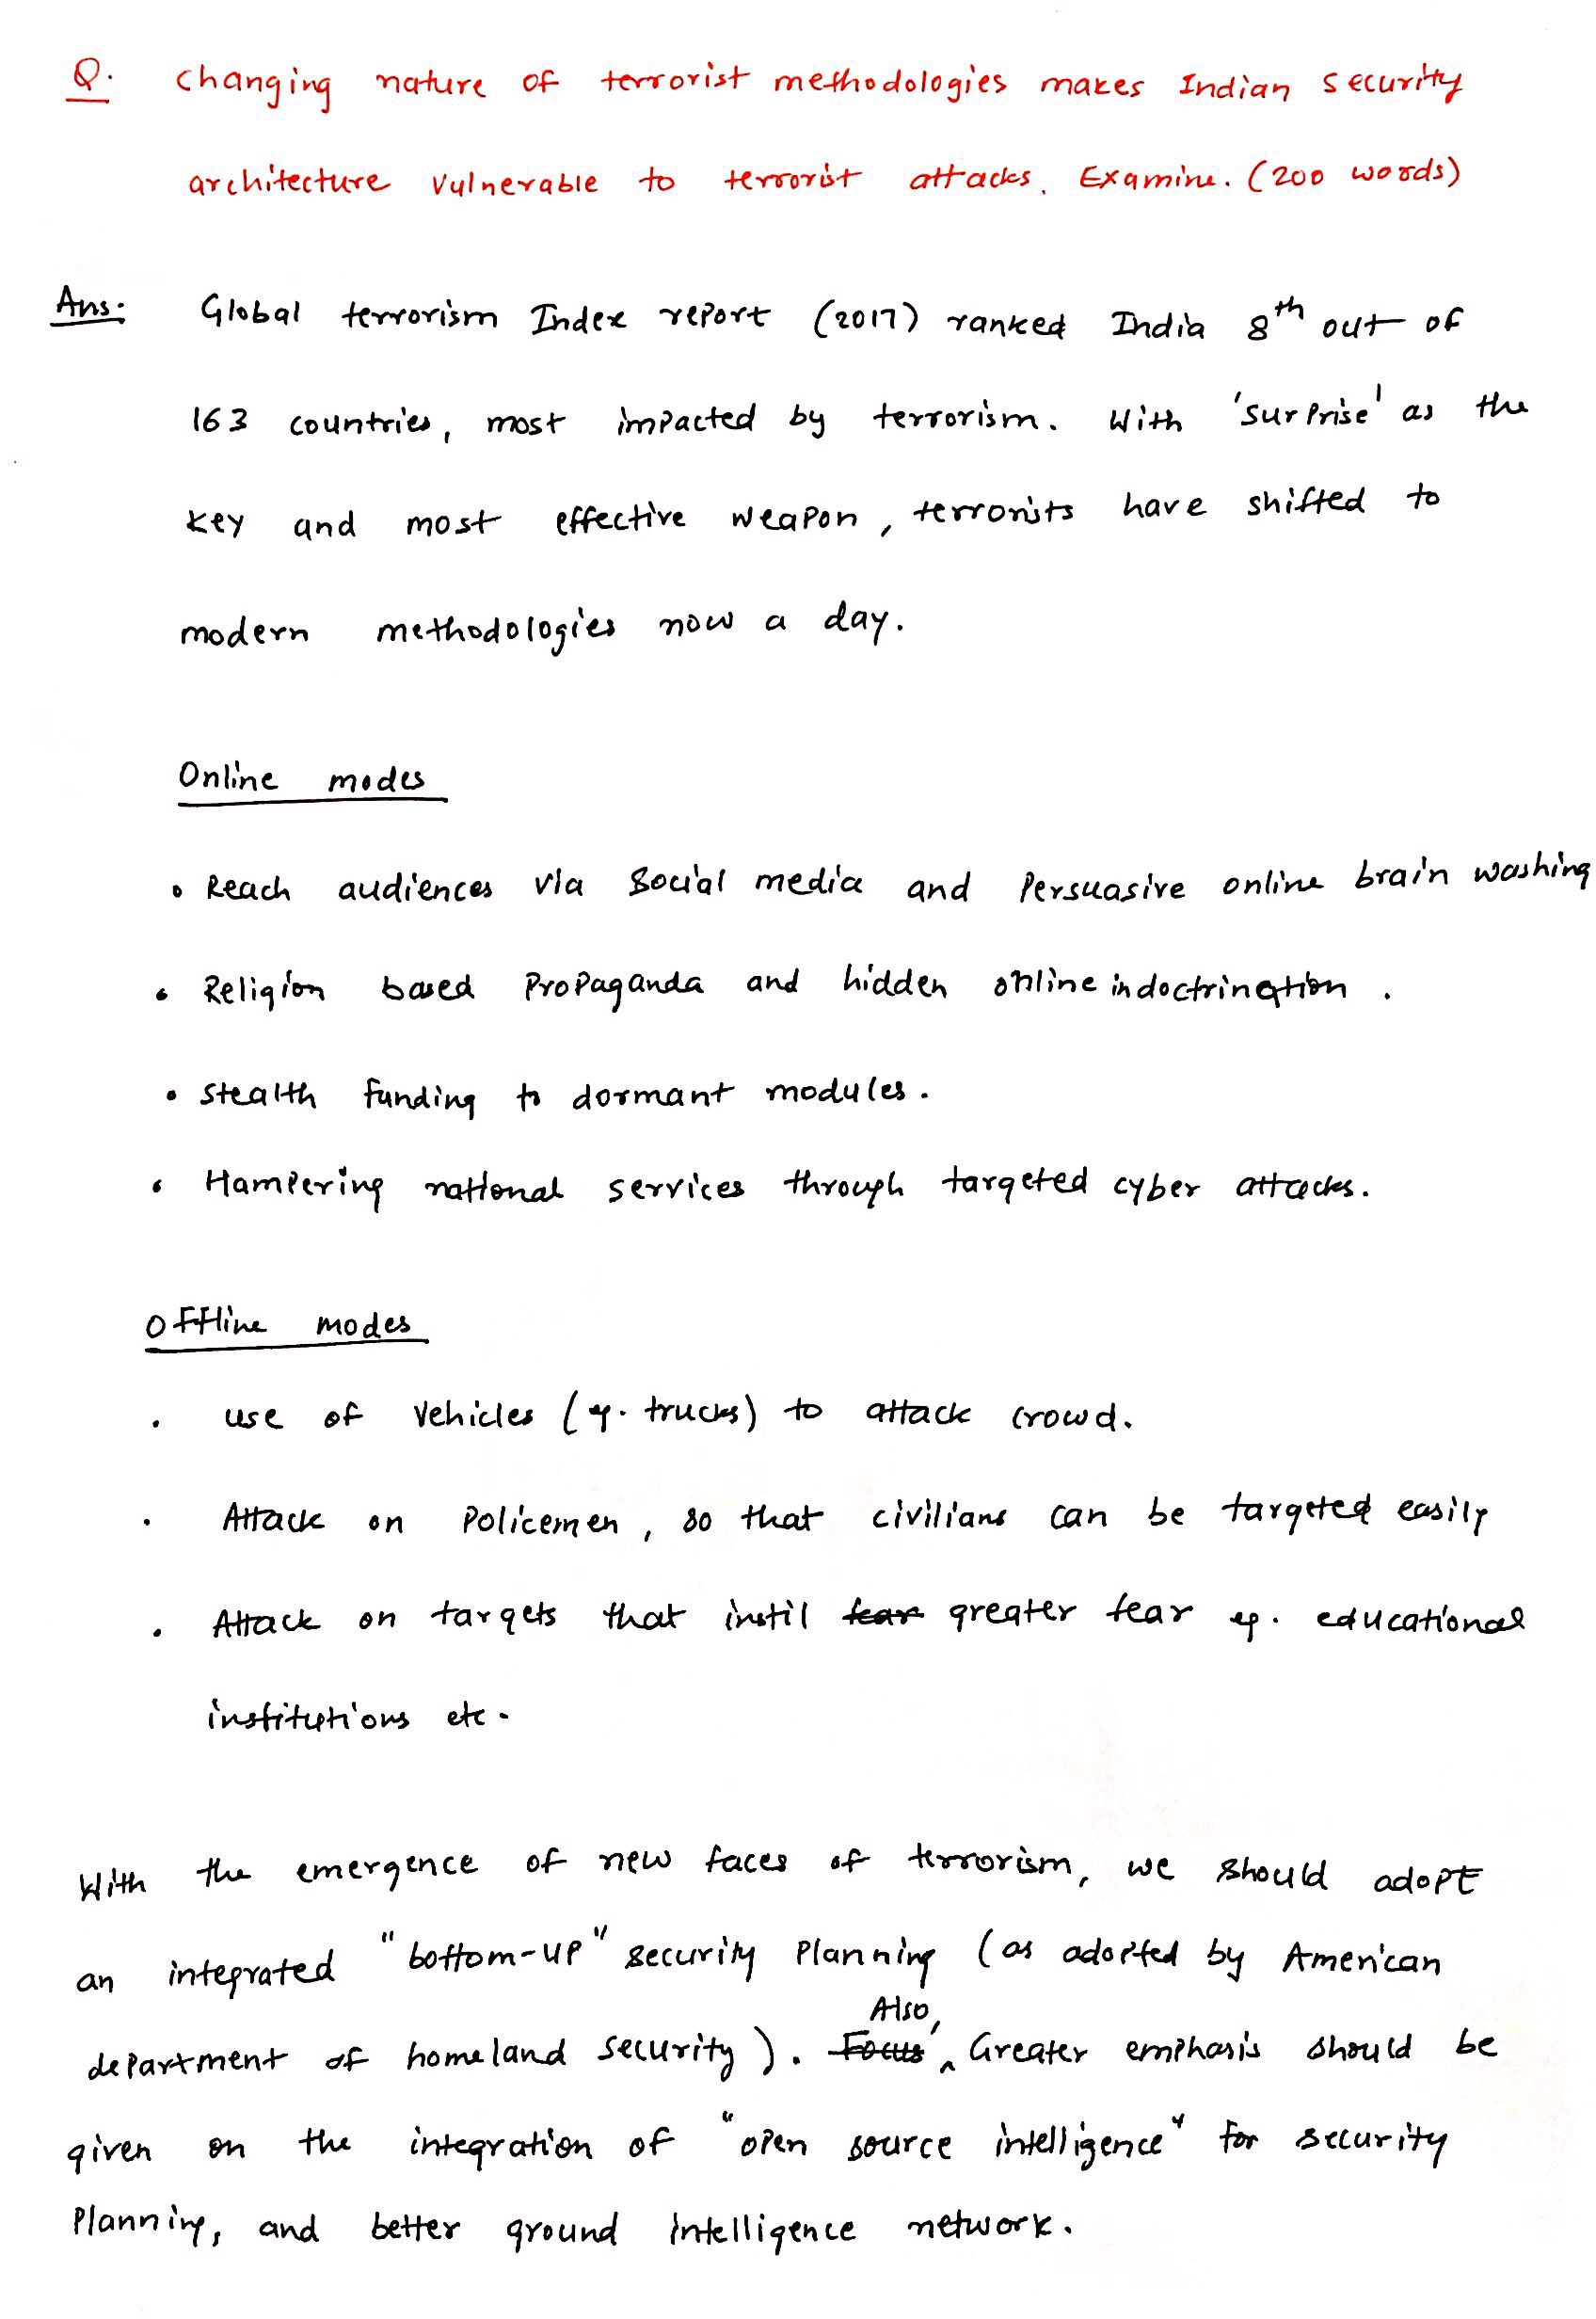 Q. Changing nature of terrorist methodologies makes Indian security
architecture vulnerable to terrorist attacks. Examine. (200 words)
Ans: Global terrorism Index report (2017) ranked India 8th out of
163 countries, most impacted by terrorism. With 'surprise' as the
key and most effective weapon, terrorists have shifted to
modern methodologies now a day.
Online modes
• Reach audiences via social media and persuasive online brain washing
• Religion based propaganda and hidden online indoctrination.
• Stealth funding to dormant modules.
• Hampering national services through targeted cyber attacks.
Offline modes
• use of vehicles (eg. trucks) to attack crowd.
• Attack on policemen, so that civilians can be targeted easily
• Attack on targets that instil fear greater fear eg. educational
institutions etc.
With the emergence of new faces of terrorism, we should adopt
an integrated "bottom-up" security planning (as adopted by American
department of homeland security). Focus Also, Greater emphasis should be
given on the integration of "open source intelligence" for security
planning, and better ground intelligence network.